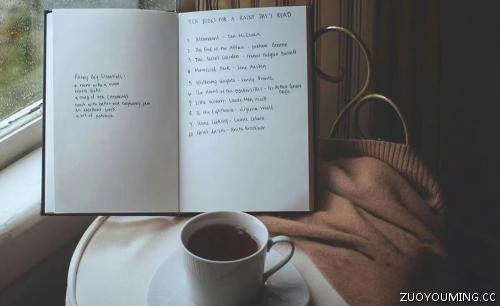 Rainy Day Essentials:
a room with a view
warm quilt
a mug of tea (steaming)
toast with butter and raspberry jam
an excellent book
a bit of patience
TEN BOOKS FOR A RAINY DAY'S READ
1. Atonement - Ian McEwan
2. The End of the Affair - Graham Greene
3. The Secret Garden - Frances Hodgson Burnett
4. Mansfield Park - Jane Austen
5. Wuthering Heights - Emily Bronte
6. The Hound of the Baskervilles - Sir Arthur Conan Doyle
7. Little Women - Louisa May Alcott
8. To the Lighthouse - Virginia Woolf
9. - Laurie
10. Hotel du Lac - Anita Brookner
ZUOYOUMING.CC